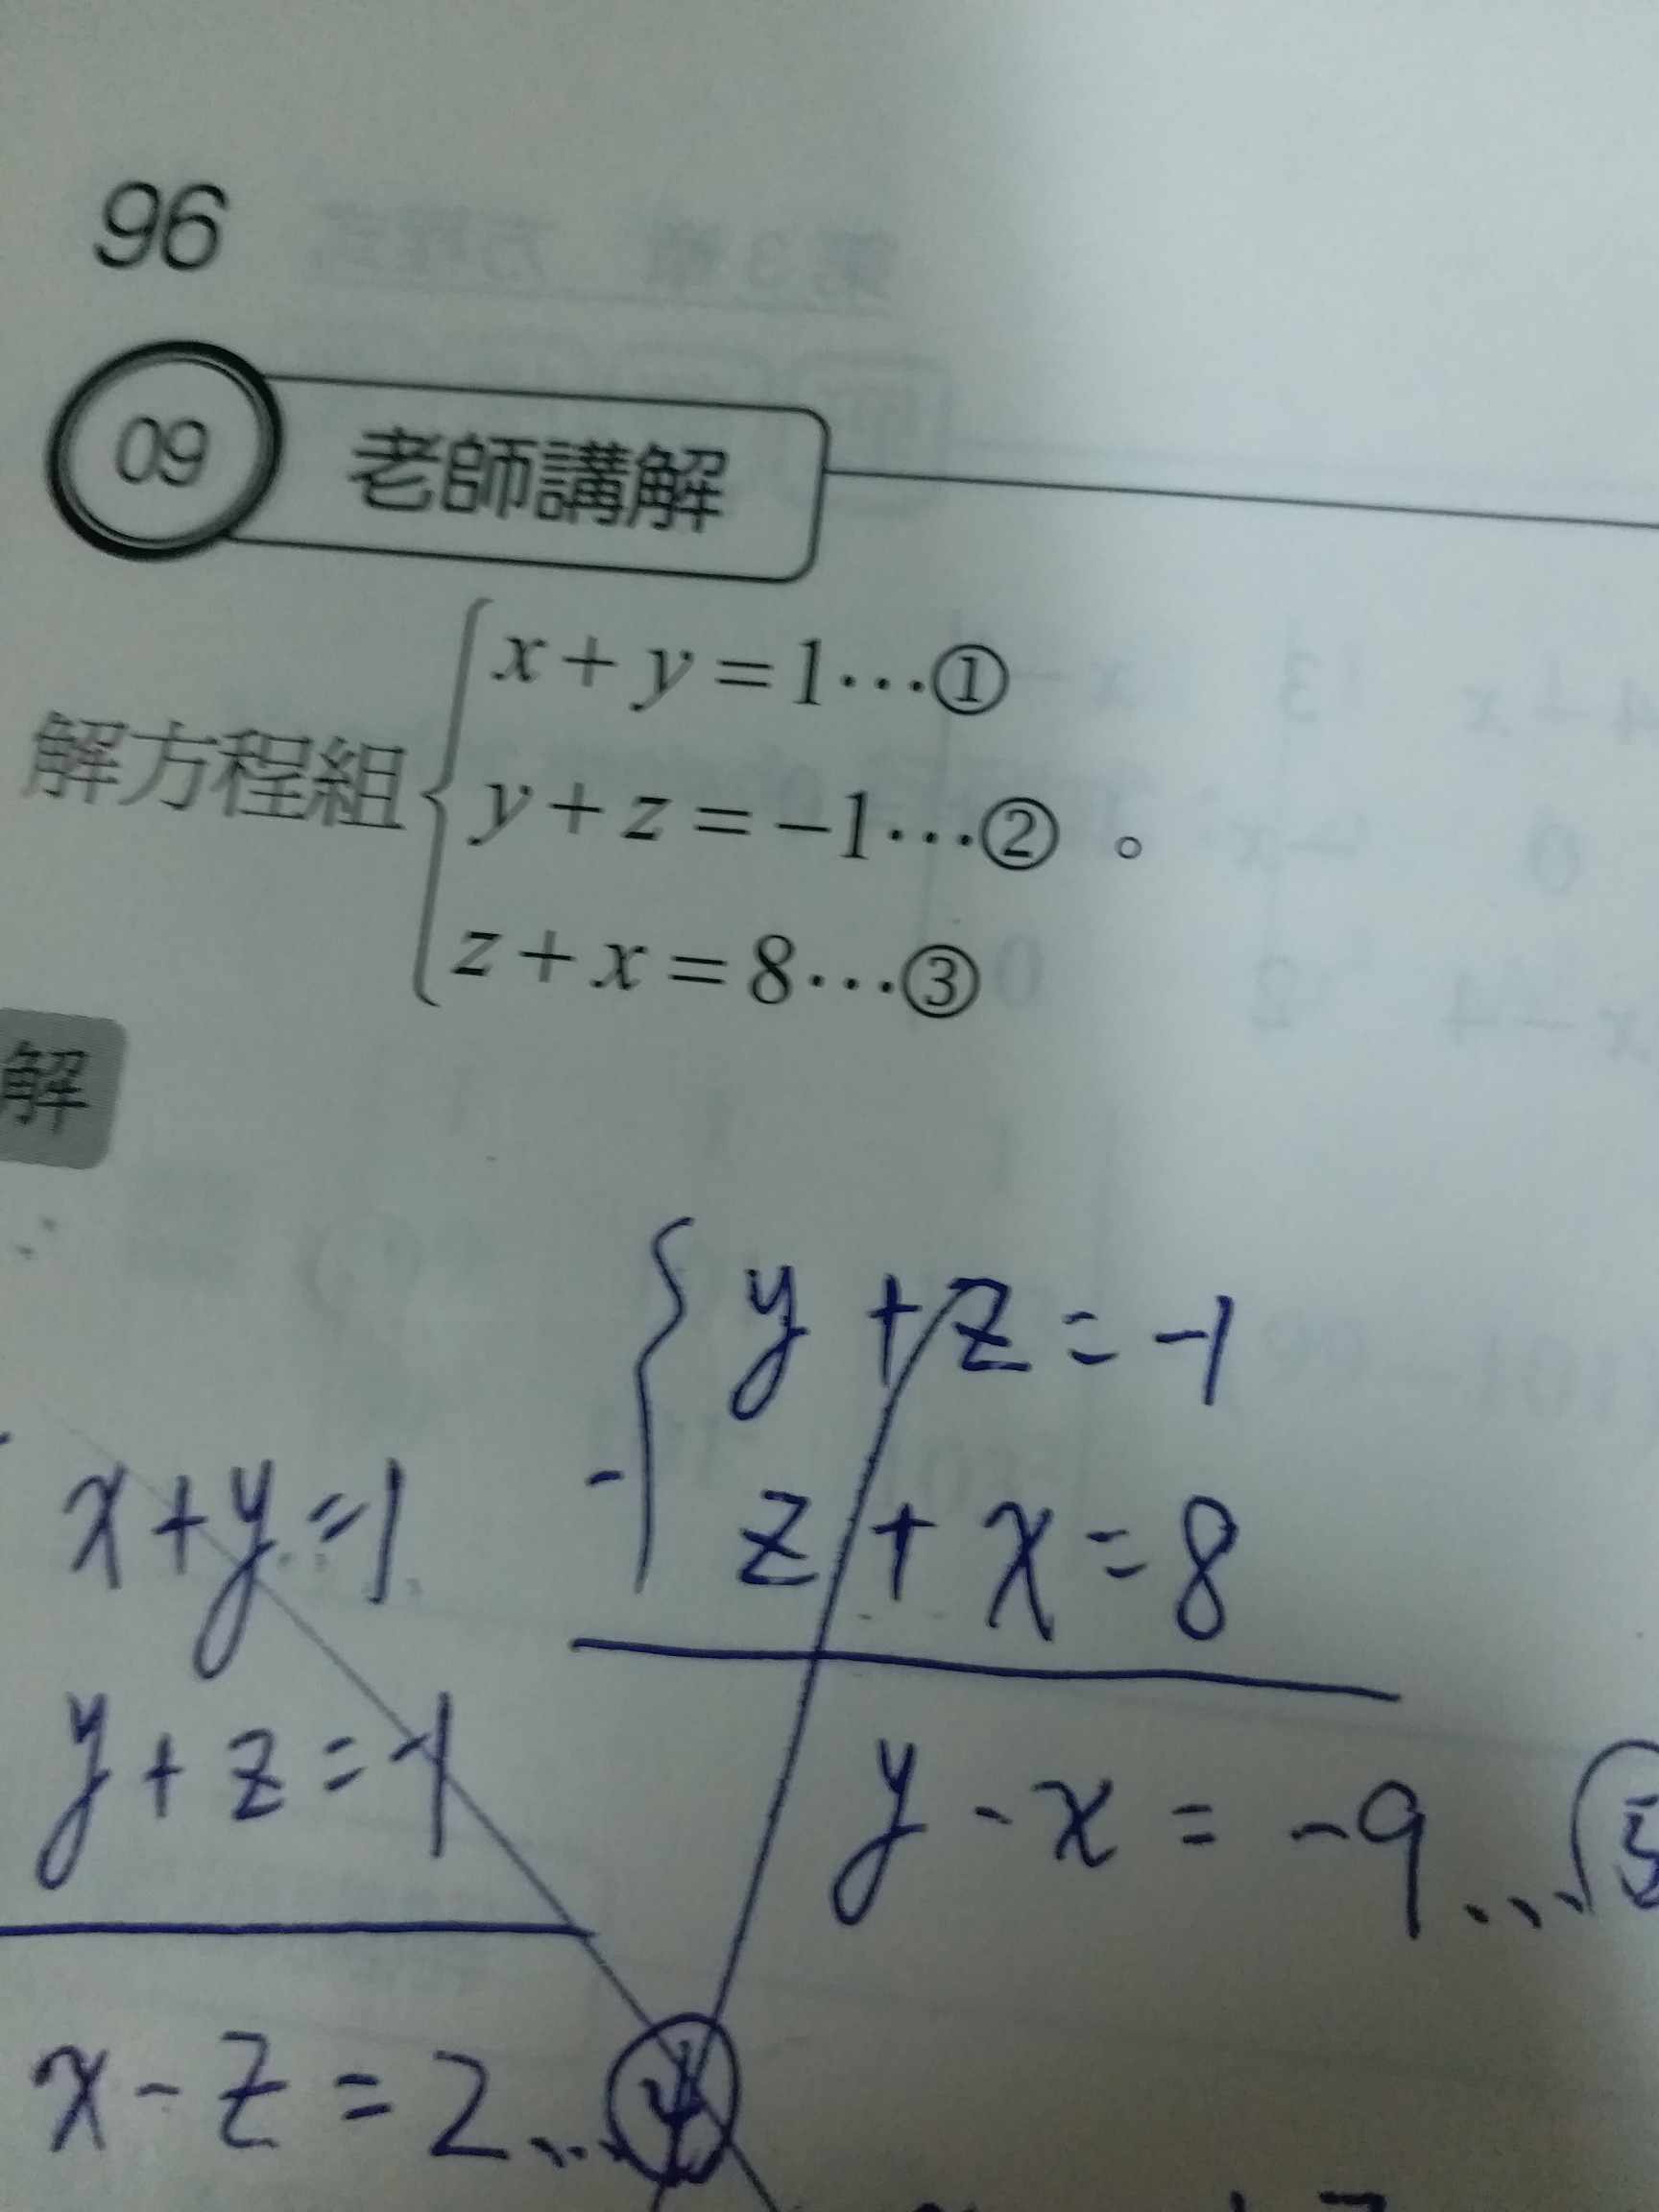 96
09 老師講解
解方程組
x + y = 1…①
y + z = −1…② 。
z + x = 8…③
解
x + y = 1
y + z = -1
x - z = 2 …
y + z = -1
- z + x = 8
y - x = -9 … ⑤